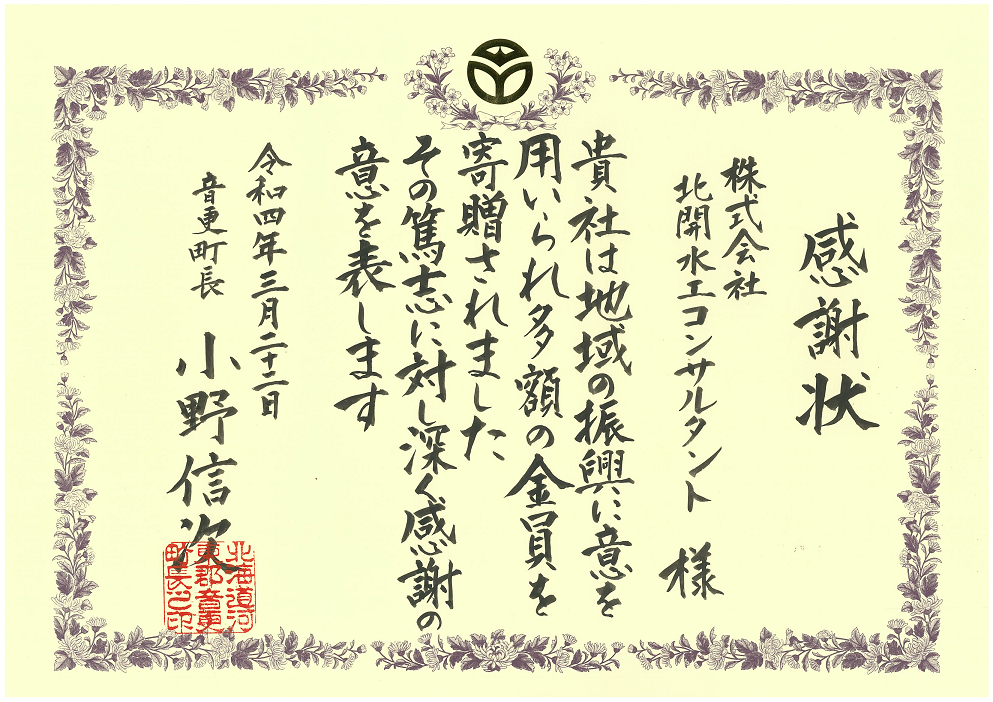 感謝状
株式会社
北開水工コンサルタント 様
貴社は地域の振興に意を
用いられ多額の金員を
寄贈されました
その篤志に対し深く感謝の
意を表します
令和四年三月二十二日
音更町長 小野信次
北海道河
東郡音更
町長之印